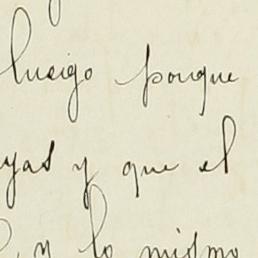 lueigo porque
yas y que el
y lo mismo